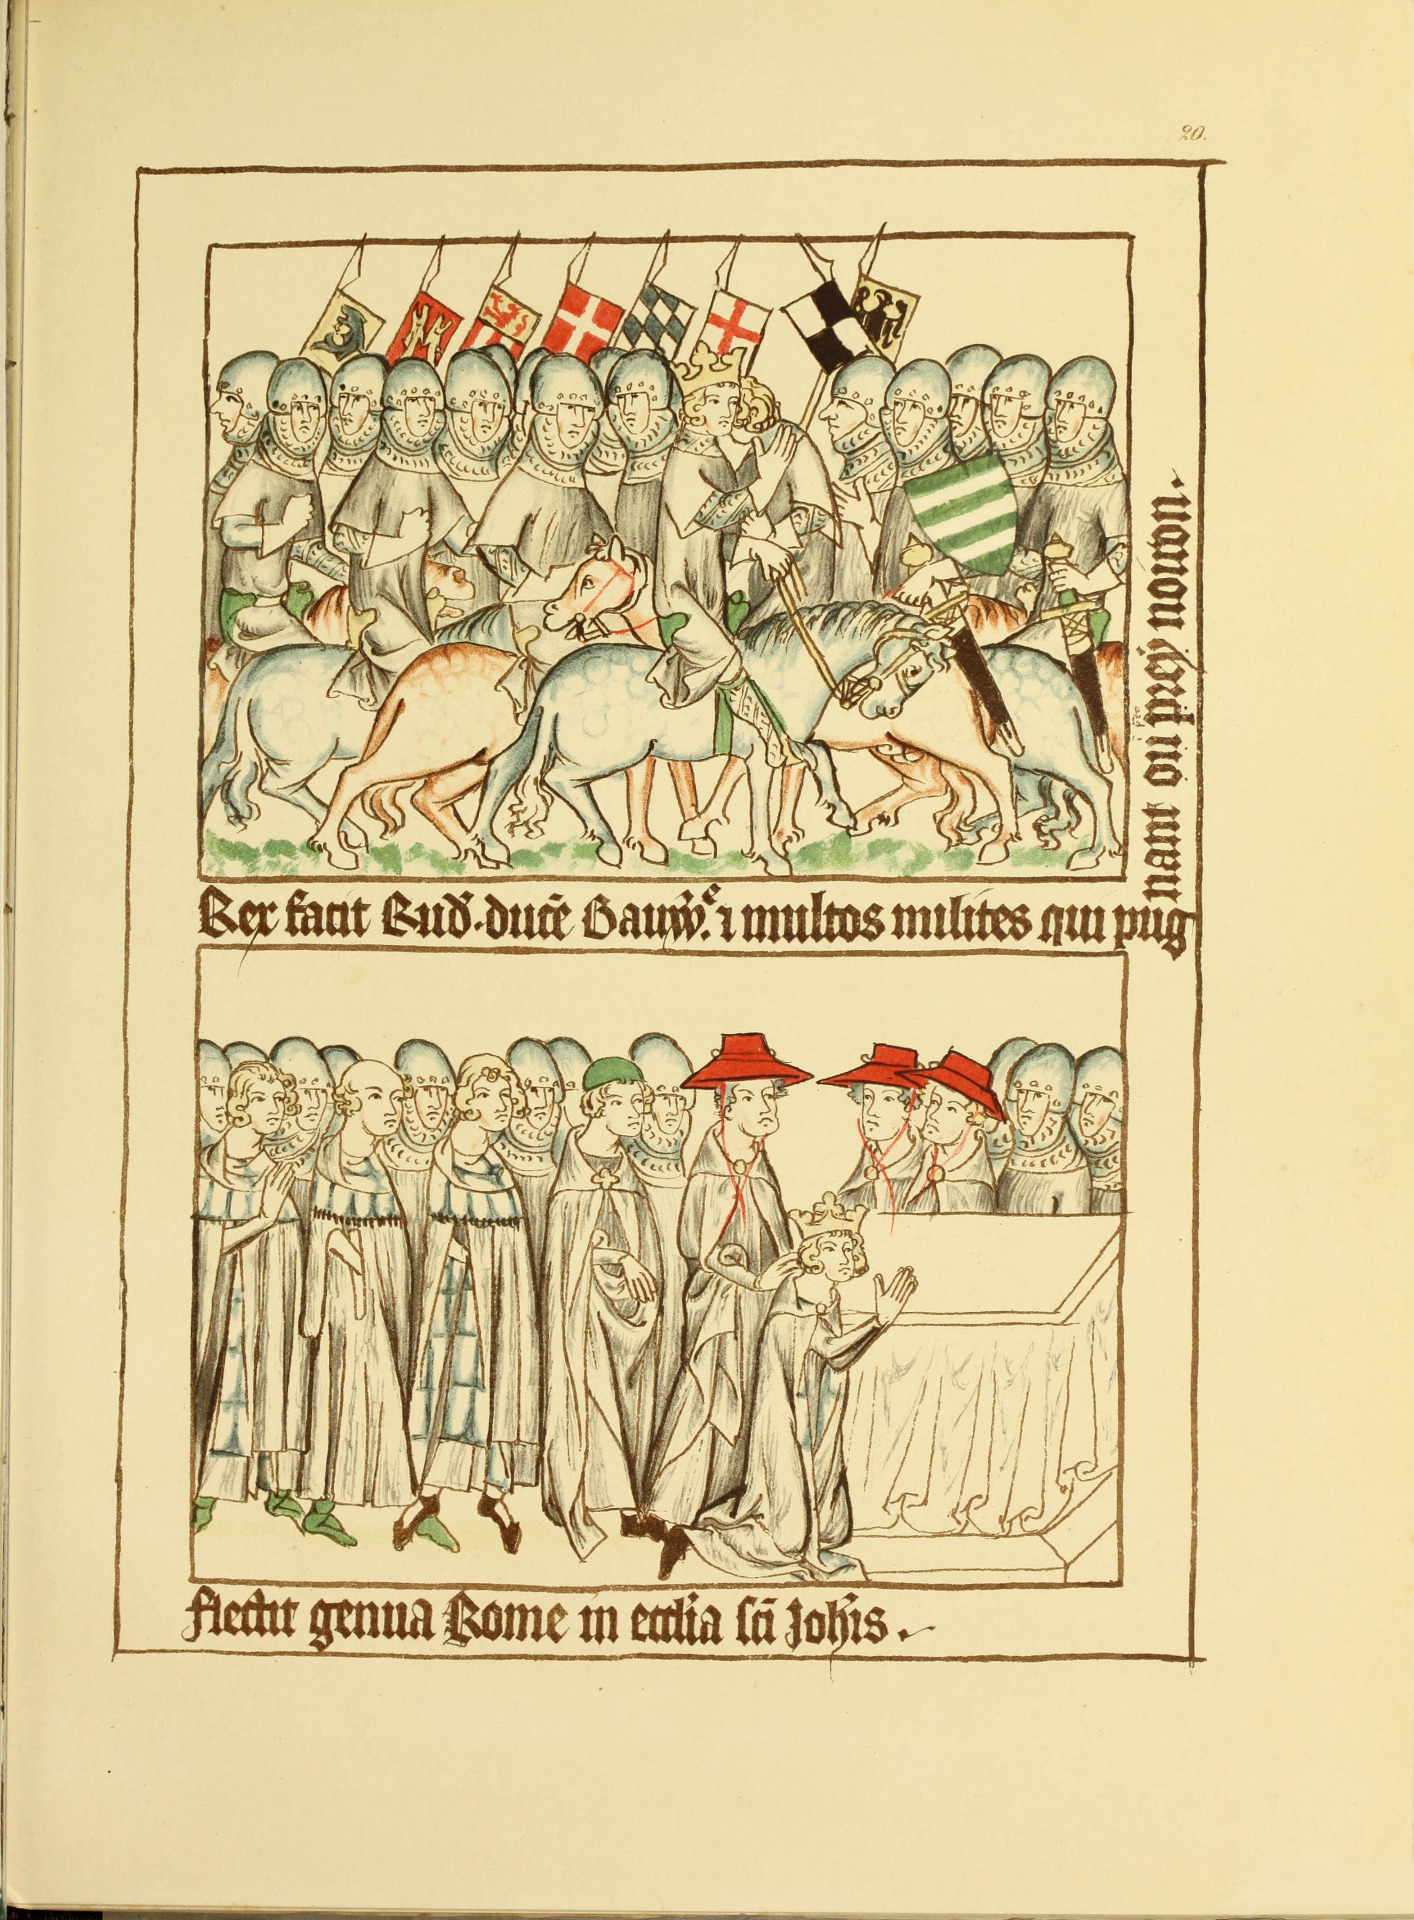 20.
Rex facit Rud̃. ducẽ Bauw̃.ͤ ⁊ multos milites qui pug
nant on prey nouon.
flectit genua Rome in eccl̃ia sc̃i Joh̃is.